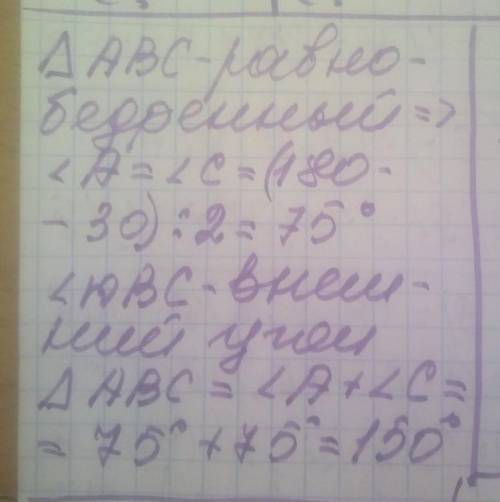 ΔABC-равно-
бедренный =>
∠A=∠C=(180-
-30):2=75°
∠ABC-внеш-
ний угол
ΔABC=∠A+∠C=
=75°+75°=150°